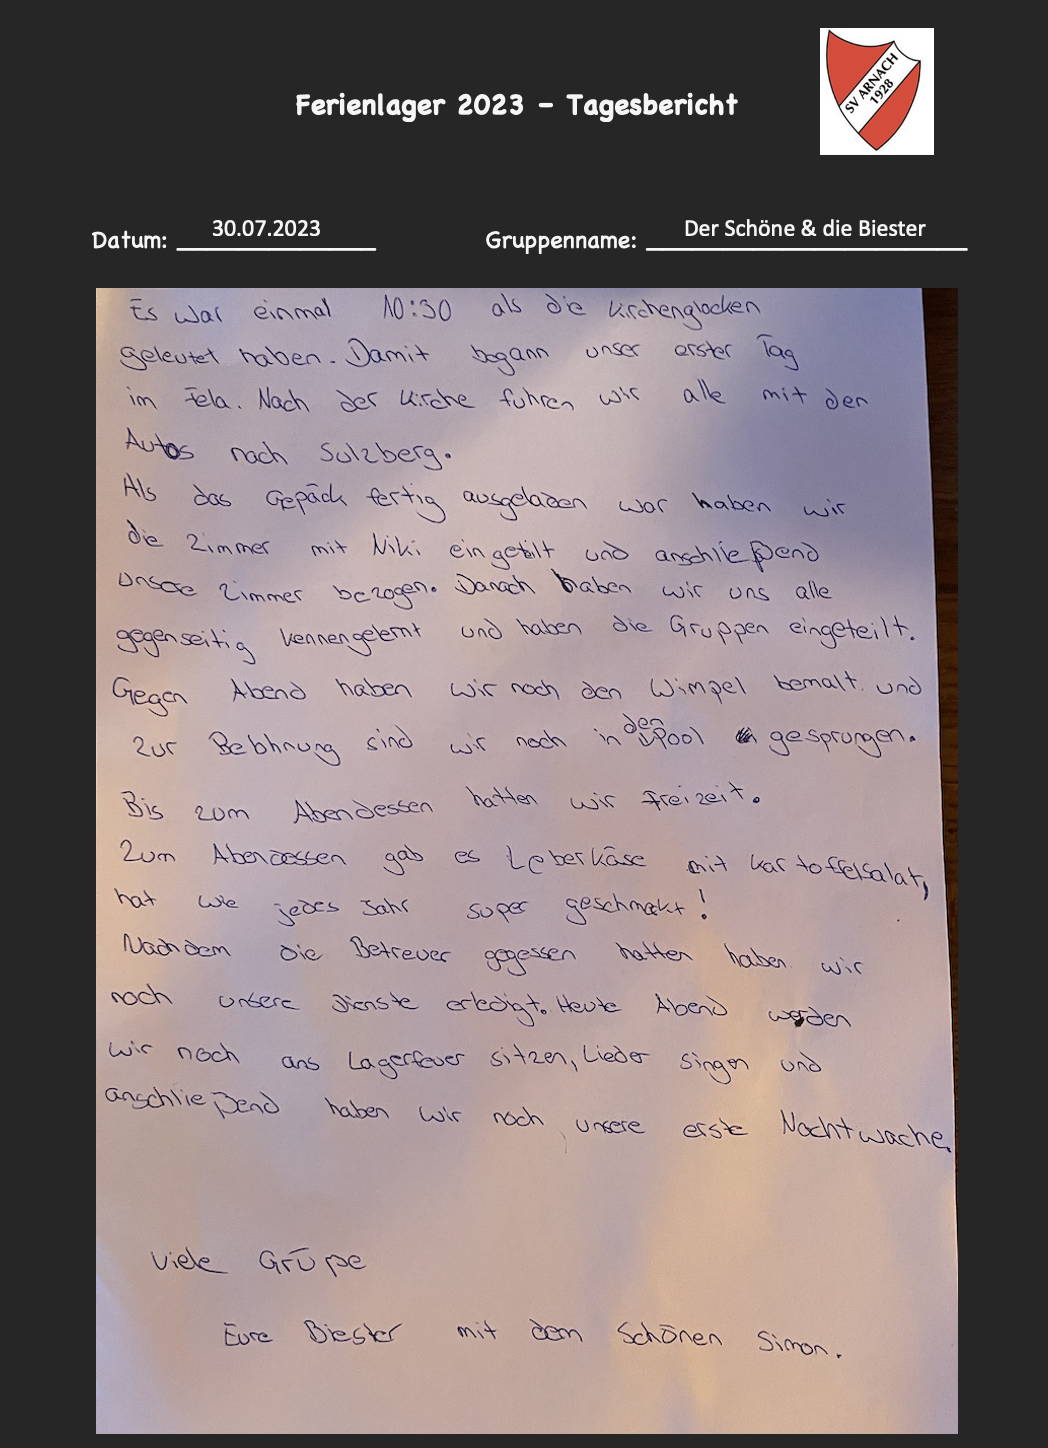 SV ARNACH
1928
Ferienlager 2023 – Tagesbericht
Datum: 30.07.2023 Gruppenname: Der Schöne & die Biester
Es war einmal 10:30 als die Kirchenglocken
geleutet haben. Damit begann unser erster Tag
im Fela. Nach der Kirche fuhren wir alle mit den
Autos nach Sulzberg.
Als das Gepäck fertig ausgeladen war haben wir
die Zimmer mit Niki eingeteilt und anschließend
unsere Zimmer bezogen. Danach haben wir uns alle
gegenseitig kennengelernt und haben die Gruppen eingeteilt.
Gegen Abend haben wir noch den Wimpel bemalt und
zur Belohnung sind wir noch in den Pool gesprungen.
Bis zum Abendessen hatten wir Freizeit.
Zum Abendessen gab es Leberkäse mit Kartoffelsalat,
hat wie jedes Jahr super geschmekt!
Nachdem die Betreuer gegessen hatten haben wir
noch unsere Dienste erledigt. Heute Abend werden
wir noch ans Lagerfeuer sitzen, Lieder singen und
anschließend haben wir noch unsere erste Nachtwache.
Viele Grüße
Eure Biester mit dem Schönen Simon.